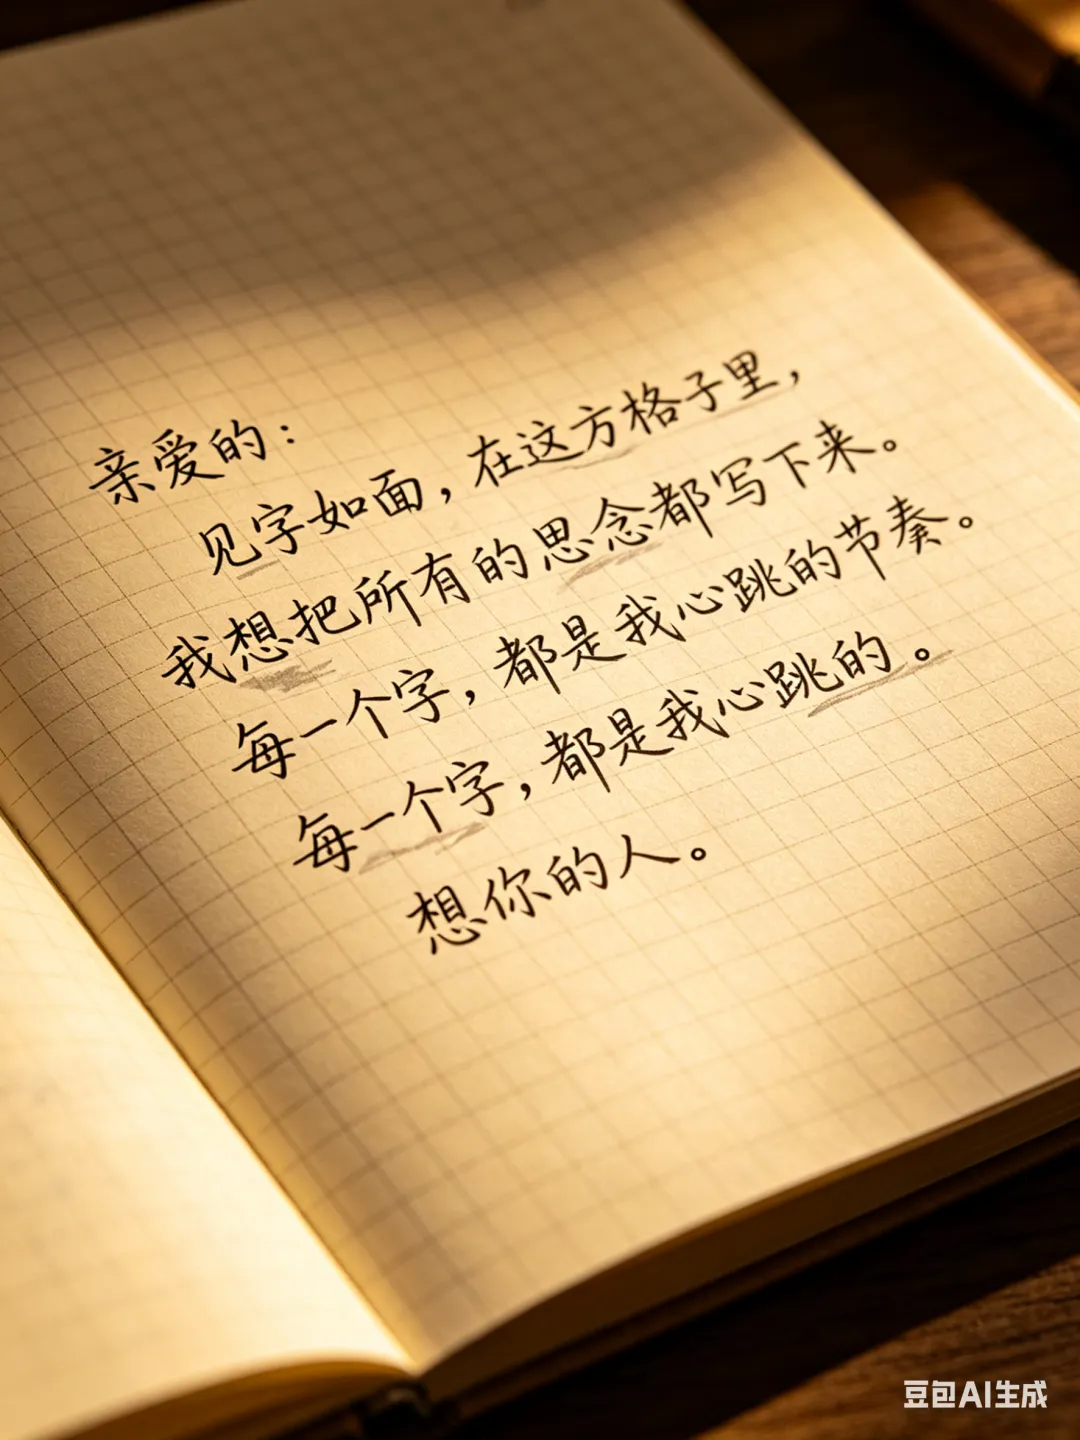 亲爱的：
见字如面，在这方格子里，
我想把所有的思念都写下来。
每一个字，都是我心跳的节奏。
每一个字，都是我心跳的。
想你的人。
豆包AI生成